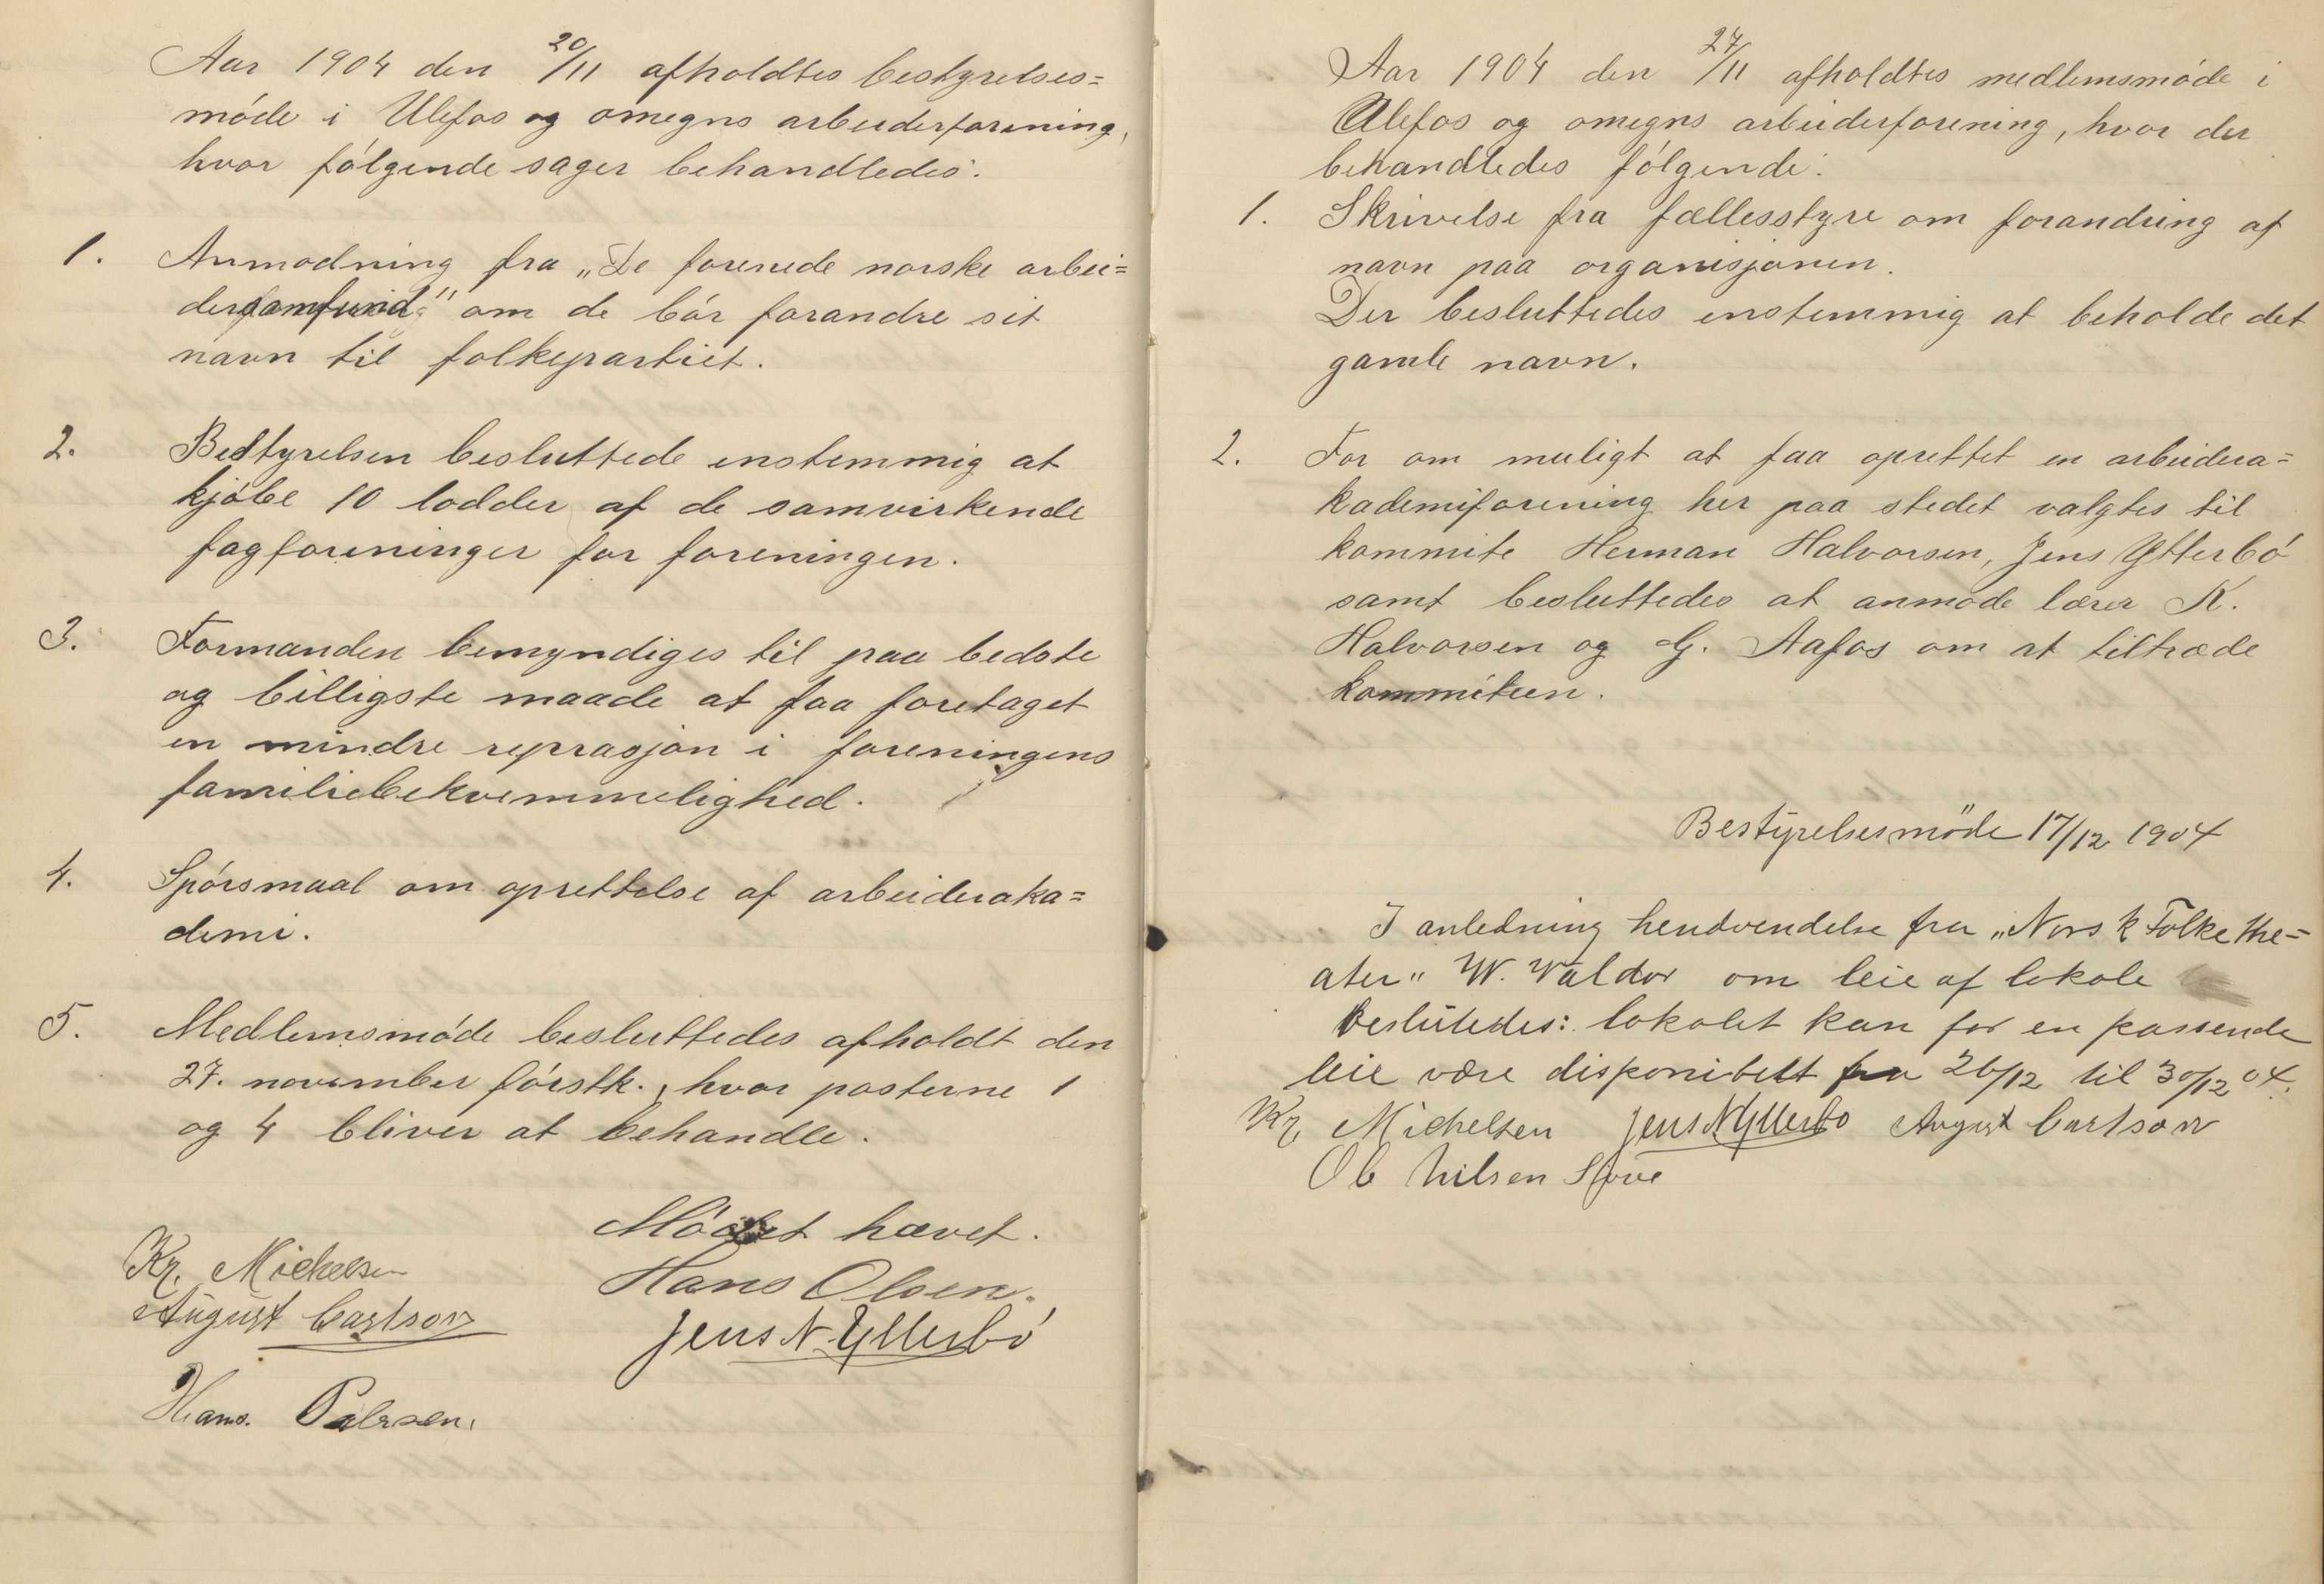 Aar 1904 den 20/11 afholdtes bestyrelses=
møde i Ulefos og omegns arbeiderforening,
hvor følgende sager behandledes:
1. Anmodning fra „De forenede norske arbei=
dersamfund" om de bør forandre sit
navn til folkepartiet.
2. Bestyrelsen besluttede enstemmig at
kjøbe 10 lodder af de samvirkende
fagforeninger for foreningen.
3. Formanden bemyndiges til paa bedste
og billigste maade at faa foretaget
en mindre reprasjon i foreningens
familiebekvemmelighed.
4. Spørsmaal om oprettelse af arbeideraka=
demi.
5. Medlemsmøde besluttedes afholdt den
27. november førstk., hvor posterne 1
og 4 bliver at behandle.
Mødet hævet.
Kr. Michelsen
Hans Olsen.
August Carlson
Jens N. Ytterbø
Hans.
Aar 1904 den 27/11 afholdtes medlemsmøde i
Ulefos og omegns arbeiderforening, hvor der
behandledes følgende:
1. Skrivelse fra fællesstyre om forandring af
navn paa organisjonen.
Der besluttedes enstemmig at beholde det
gamle navn.
2. For om muligt at faa oprettet en arbeidera=
kademiforening her paa stedet valgtes til
kommite Herman Halvorsen, Jens Ytterbø
samt besluttedes at anmode lærer K.
Halvorsen og G. Aafos om at tiltræde
kommiteen.
Bestyrelsesmøde 17/12 1904
I anledning hendvendelse fra „Norsk Folkethe=
ater" W. Waldor om leie af lokale
besluttedes: lokalet kan for en passende
leie være disponibelt fra 26/12 til 30/12 04.
Kr. Michelsen Jens N Ytterbø August Carlson
Ole Nilsen